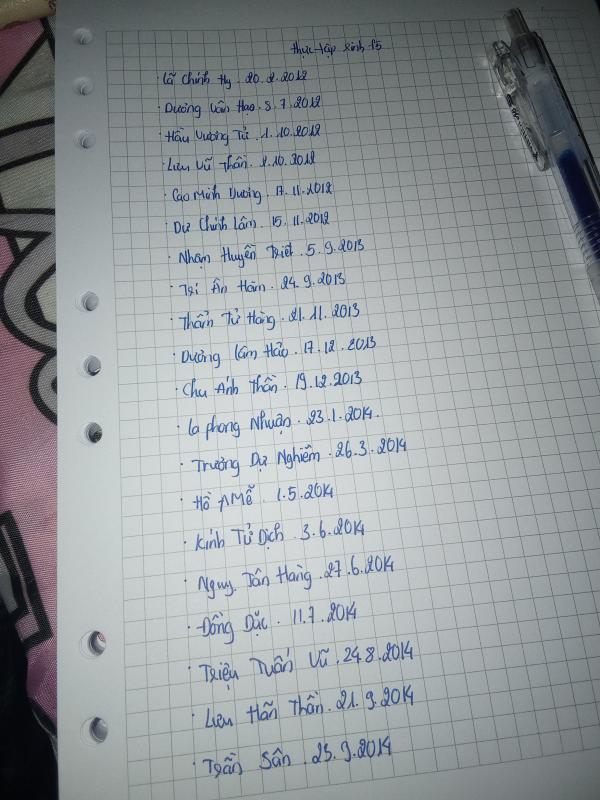 thực tập sinh f5
· Lã Chính Hy . 20.2.2012
· Dương Văn Hạo . 3.7.2012
· Hầu Vương Tử . 1.10.2012
· Lưu Vũ Thần . 2.10.2012
· Cao Minh Dương . 17.11.2012
· Dư Chính Lâm . 15.11.2012
· Nhậm Huyền Triết . 5.9.2013
· Trí Ân Hàm . 24.9.2013
· Thẩm Tử Hàng . 21.11.2013
· Dương Lâm Hảo . 17.12.2013
· Chu Ánh Thần . 19.12.2013
· La phong Nhuận . 23.1.2014.
· Trương Dự Nghiêm . 26.3.2014
· Hồ A Mễ . 1.5.2014
· Kính Tử Dịch . 3.6.2014
· Nguỵ Tân Hàng . 27.6.2014
· Đồng Dặc . 11.7.2014
· Triệu Tuấn Vũ . 24.8.2014
· Lưu Hãn Thần . 21.9.2014
· Trần Sân . 25.9.2014